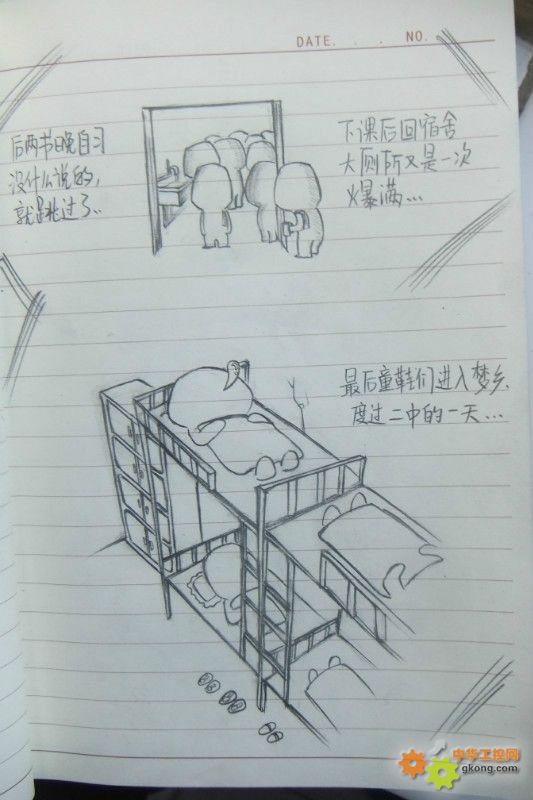 DATE. . . NO.
后两节晚自习
没什么说的,
就跳过了..
下课后回宿舍
大厕所又是一次
爆满...
最后童鞋们进入梦乡.
度过二中的一天...
中华工控网
gkong.com